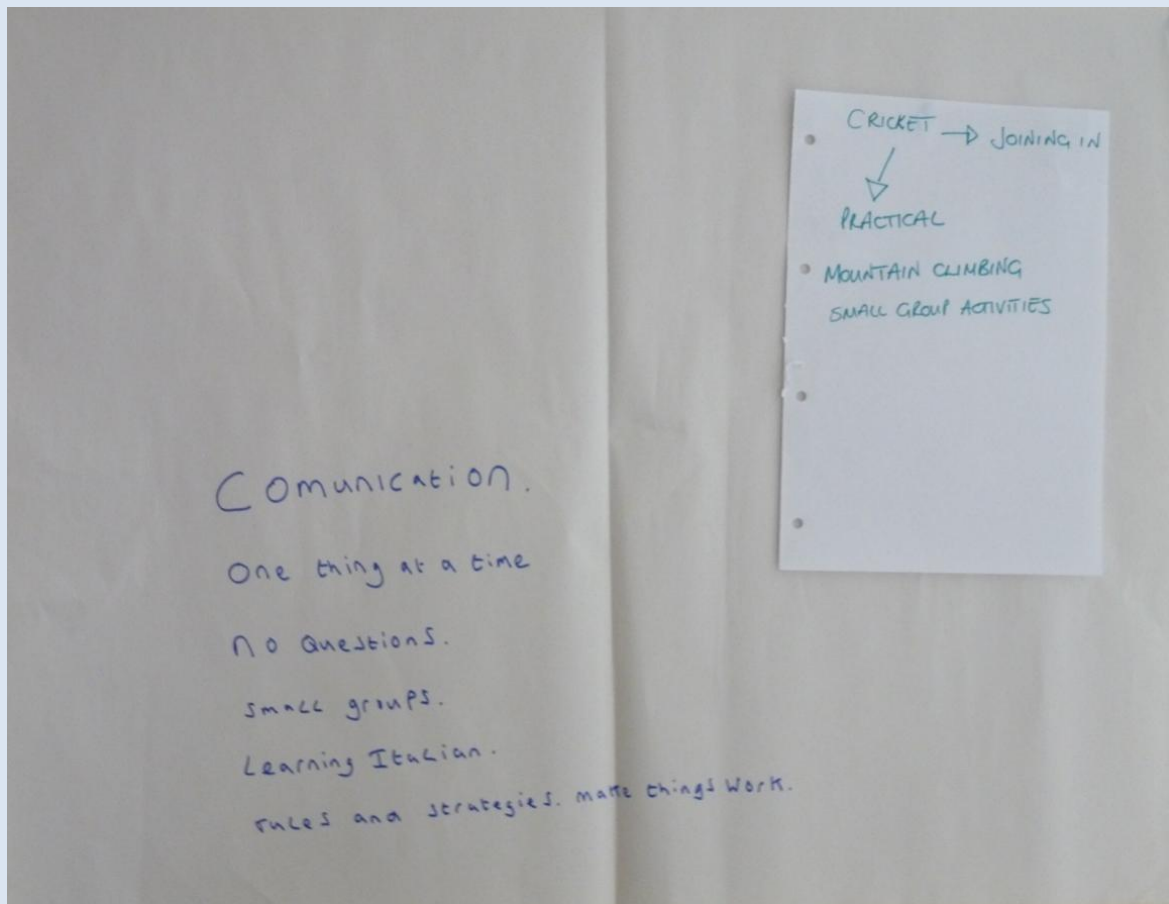 CRICKET → JOINING IN
↓
PRACTICAL
MOUNTAIN CLIMBING
SMALL GROUP ACTIVITIES
Comunication.
One thing at a time
no Questions.
small groups.
Learning Italian.
rules and strategies. make things work.